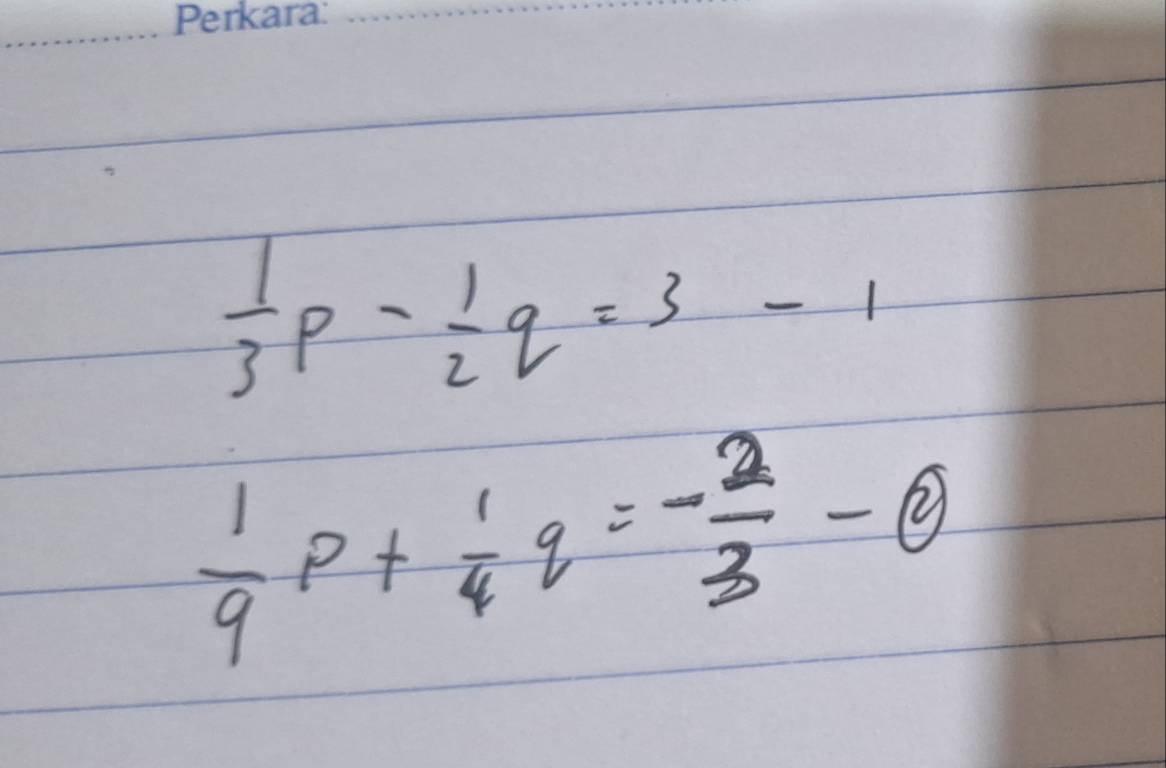 Perkara:
1/3 p - 1/2 q = 3 - 1
1/9 p + 1/4 q = -2/3 - ②